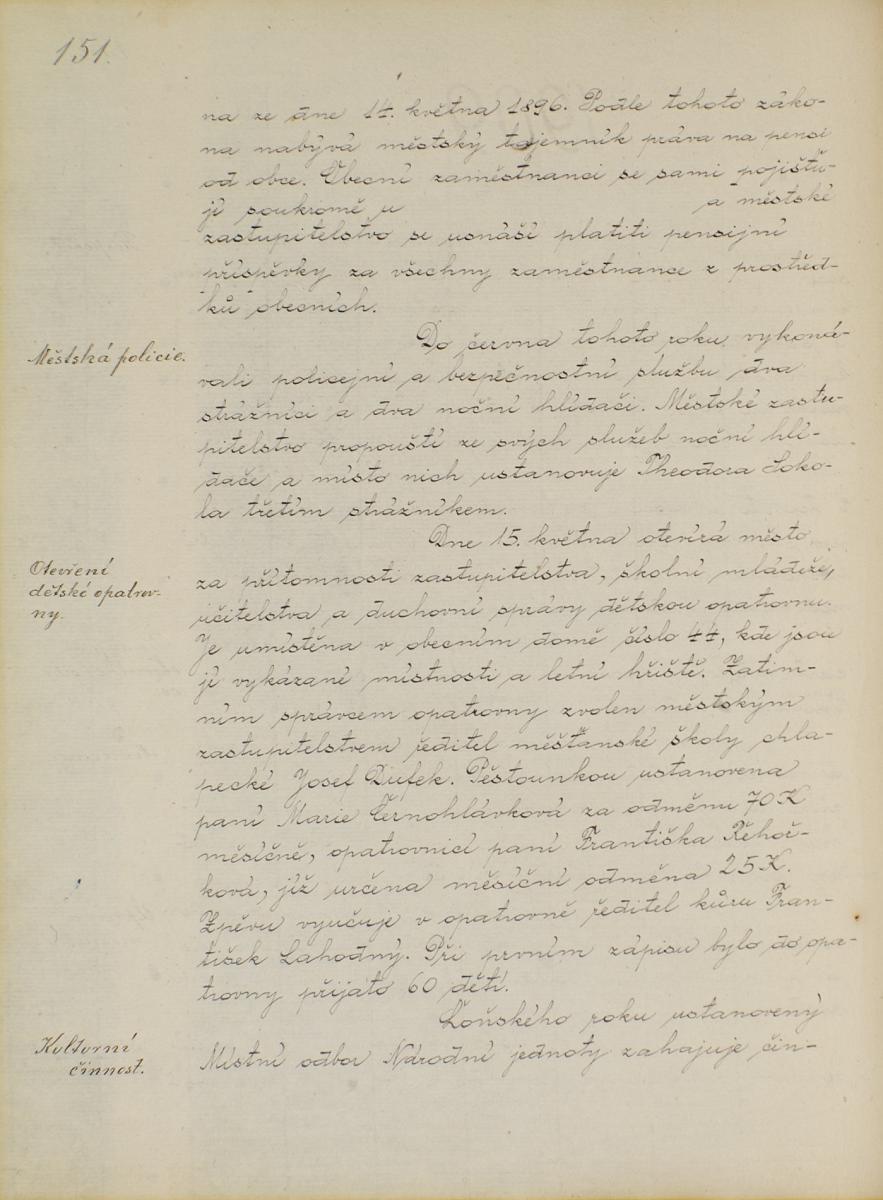 151.
na ze dne 14. května 1896. Podle tohoto záko-
na nabývá městský tajemník práva na pensi
od obce. Obecní zaměstnanci se sami pojišťu-
jí soukromě u a městské
zastupitelstvo se usnáší platiti pensijní
příspěvky za všechny zaměstnance z prostřed-
ků obecních.
Městská policie.
Do června tohoto roku vykoná-
vali policejní a bezpečnostní službu dva
strážníci a dva noční hlídači. Městské zastu-
pitelstvo propouští ze svých služeb noční hlí-
dače a místo nich ustanovuje Theodora Soko-
la třetím strážníkem.
Otevření
dětské opatrov-
ny.
Dne 15. května otevírá město
za přítomnosti zastupitelstva, školní mládeže,
učitelstva a duchovní správy dětskou opatrovnu.
Je umístěna v obecním domě číslo 44, kde jsou
jí vykázané místnosti a letní hřiště. Zatím-
ním správcem opatrovny zvolen městským
zastupitelstvem ředitel měšťanské školy chla-
pecké Josef Dufek. Pěstounkou ustanovena
paní Marie Černohlávková za odměnu 70 K
měsíčně, opatrovnicí paní Františka Řehoř-
ková, jíž určena měsíční odměna 25 K.
Zpěvu vyučuje v opatrovně ředitel kůru Fran-
tišek Lahodný. Při prvním zápisu bylo do opa-
trovny přijato 60 dětí.
Kulturní
činnost.
Loňského roku ustanovený
Místní odbor Národní jednoty zahajuje čin-